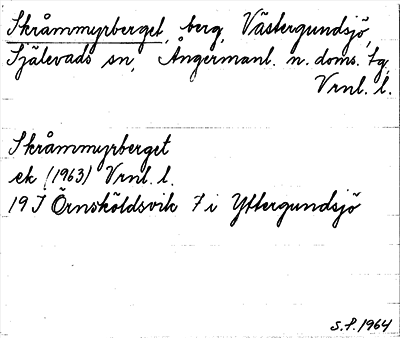 Skråmmyrberget, berg, Västergundsjö,
Själevads sn, Ångermanl. n. doms. tg,
Vrnl. l.
Skråmmyrberget
ek (1963) Vrnl. l.
19 J Örnsköldsvik 7 i Yttergundsjö
S.P. 1964